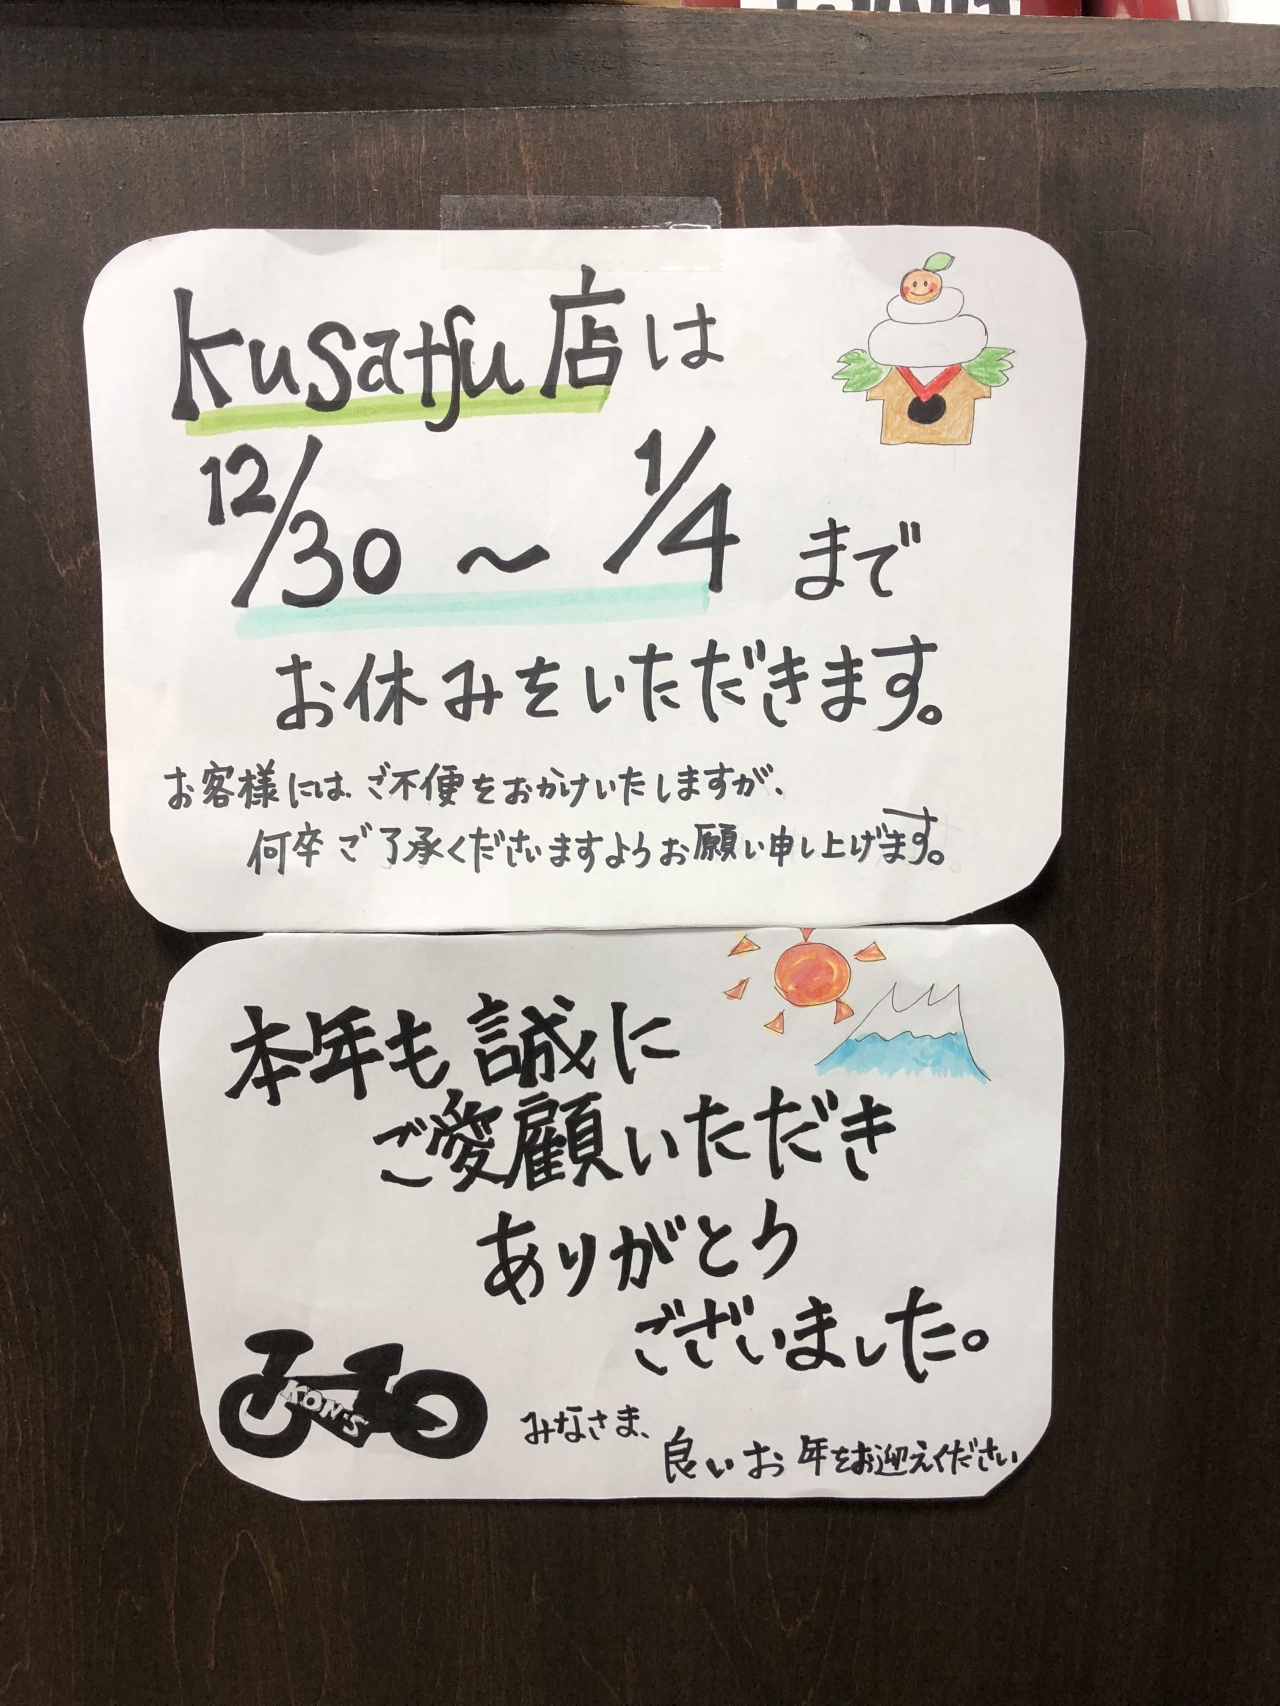 kusatsu店は
12/30 ～ 1/4 まで
お休みをいただきます。
お客様には、ご不便をおかけいたしますが、
何卒ご了承くださいますようお願い申し上げます。
本年も誠に
ご愛顧いただき
ありがとう
ございました。
KON'S
みなさま、
良いお年をお迎えください